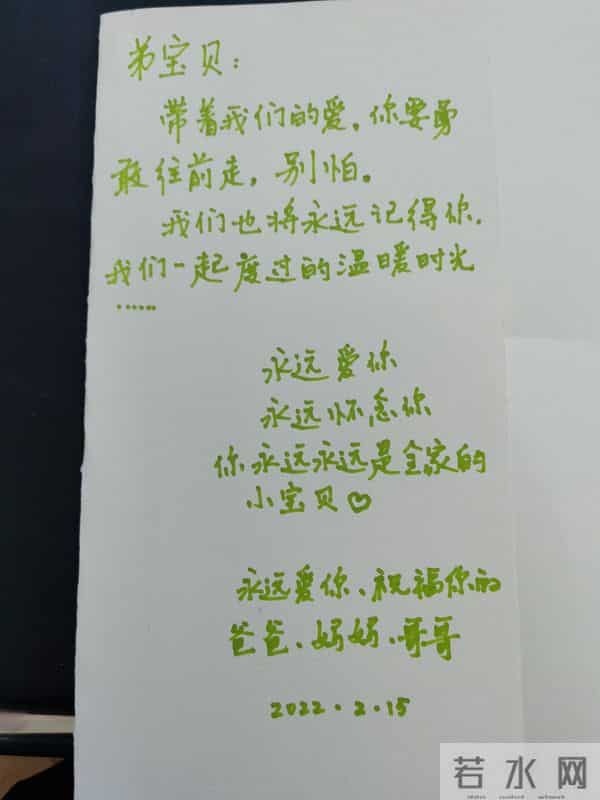 弟宝贝：
带着我们的爱，你要勇
敢往前走，别怕。
我们也将永远记得你，
我们一起度过的温暖时光
......
永远爱你
永远怀念你
你永远永远是全家的
小宝贝♡
永远爱你、祝福你的
爸爸、妈妈、哥哥
2022.2.15
若水网